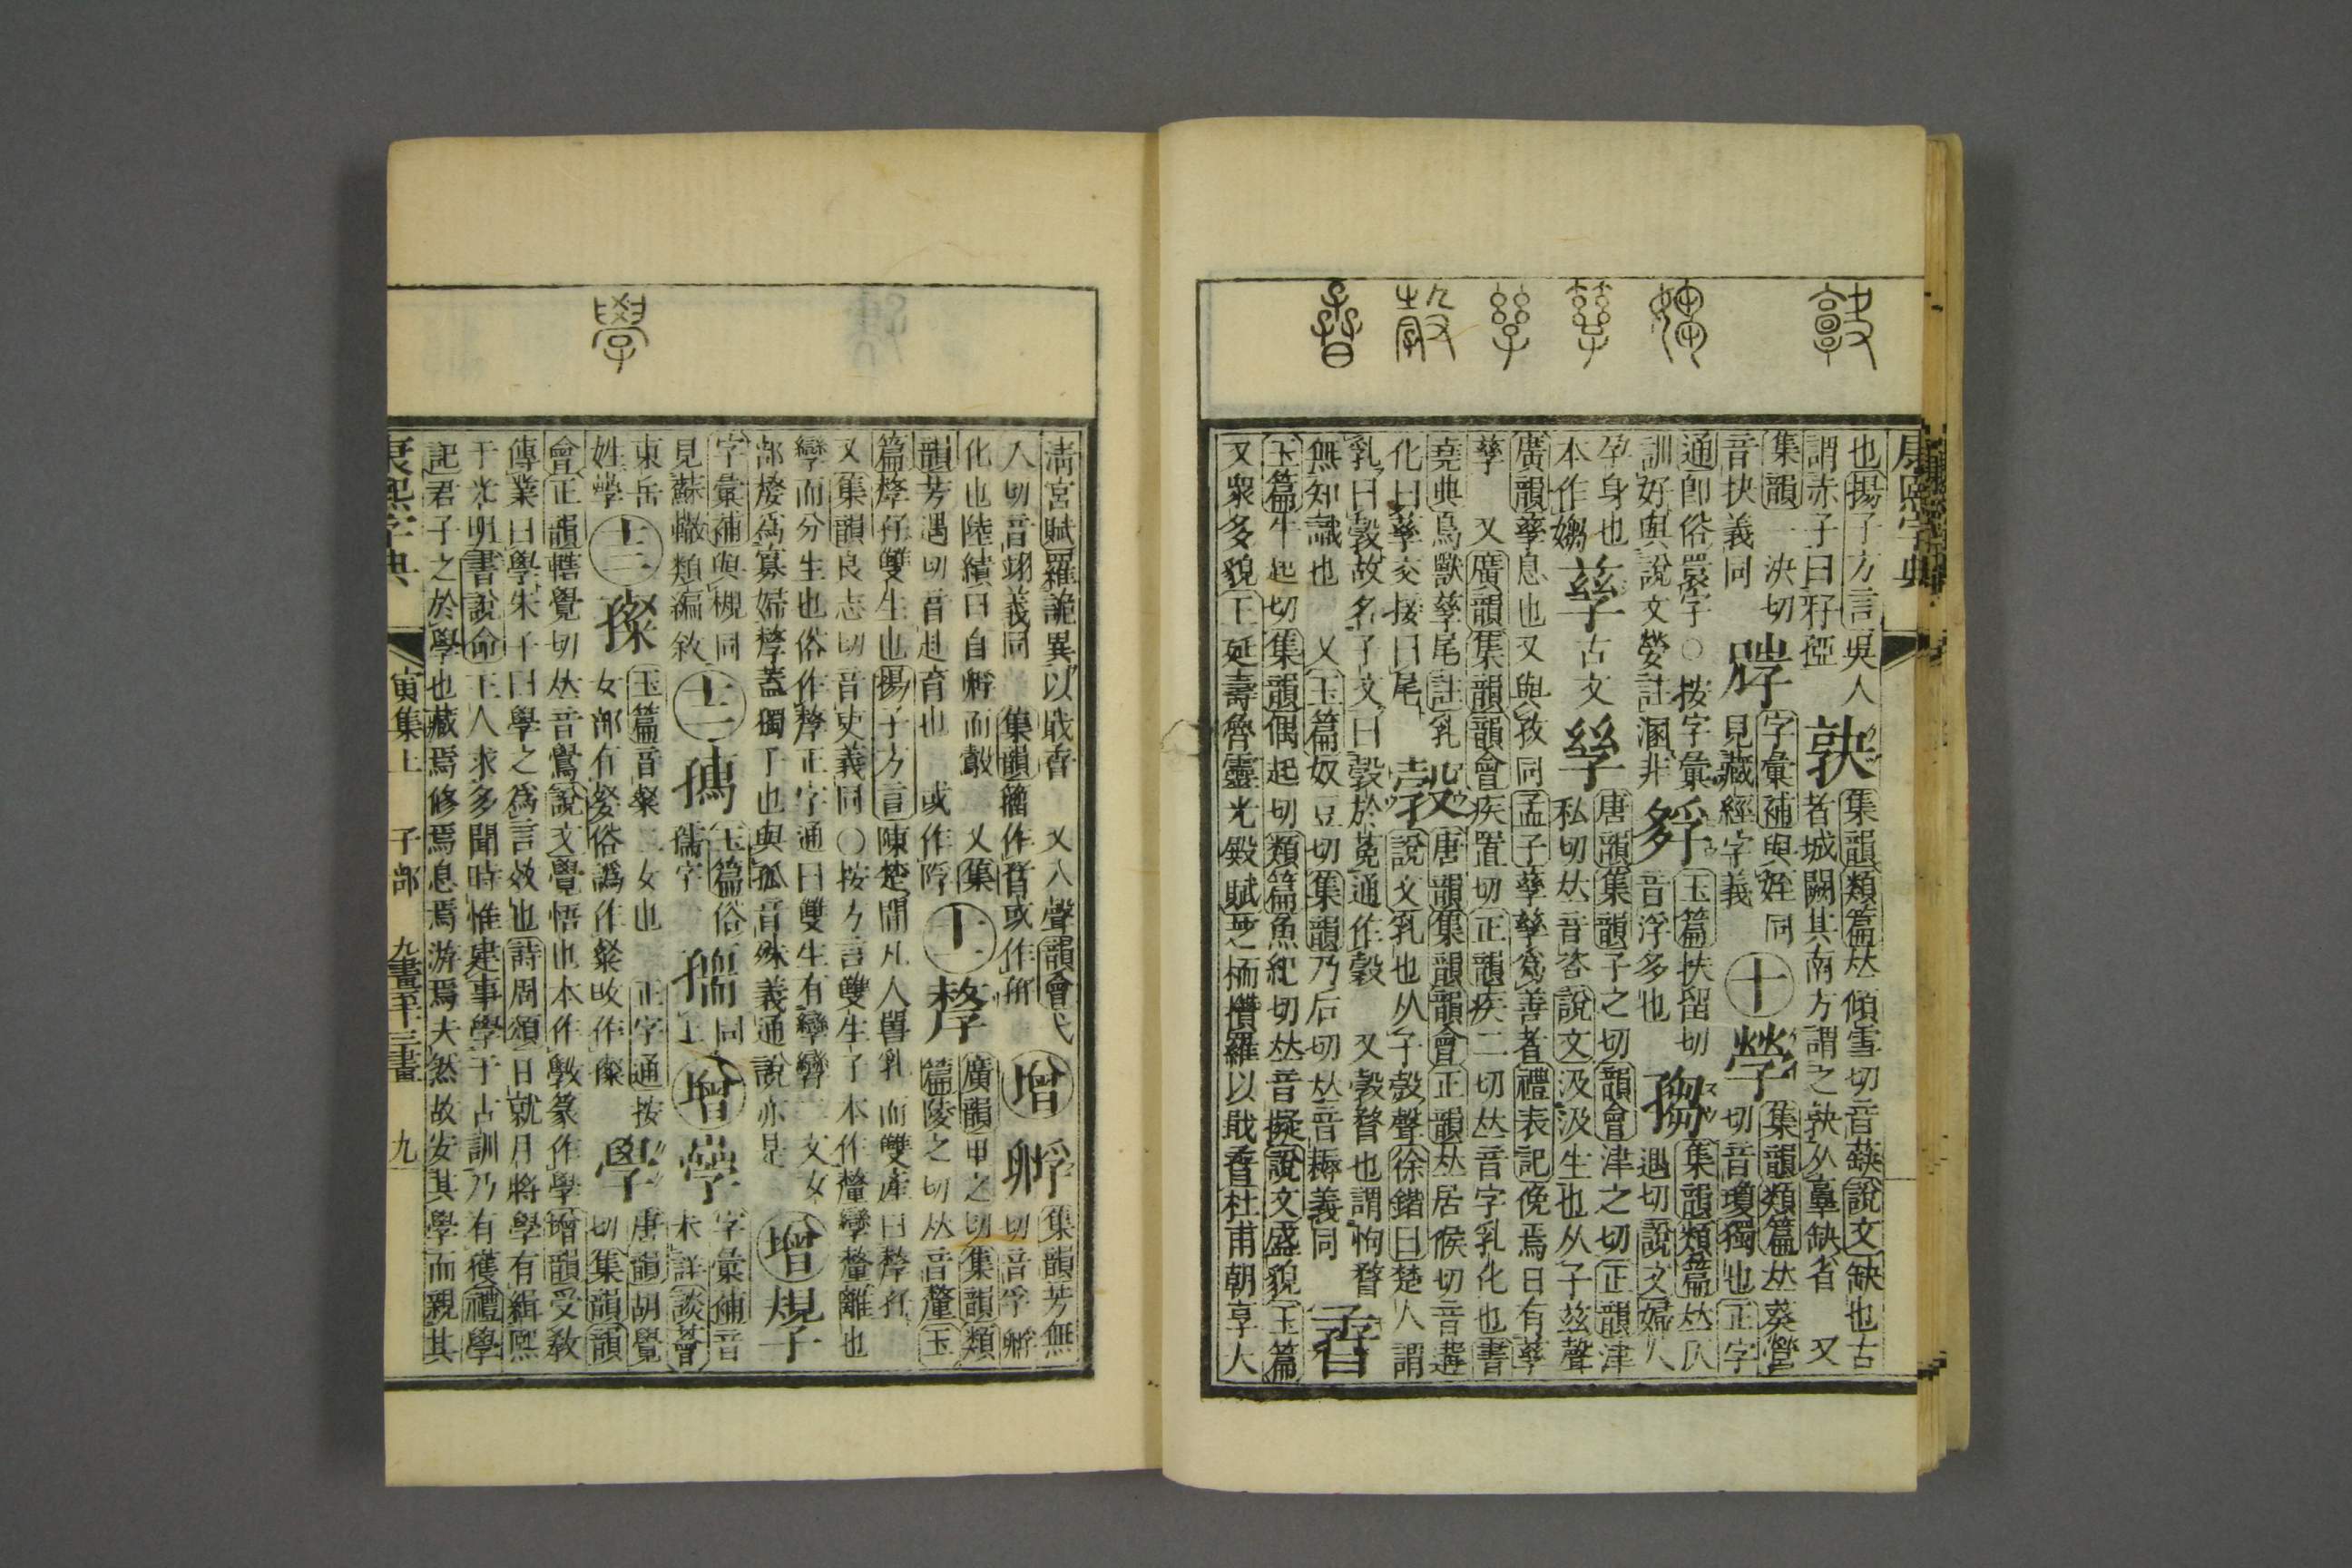 康熙字典
也揚子方言吳人
謂赤子曰㜿𤘅
孒 集韻類篇𠀤傾雪切音缺說文缺也古
者城闕其南方謂之
集韻一決切
音抉義同
字彙補與姪同
見藏經字義
十
集韻類篇𠀤葵營
切音瓊獨也正字
通卽俗惸字○按字彙
訓好與說文嫈註溷非
玉篇扶留切
音浮多也
㛀 集韻類篇𠀤仄
遇切說文婦人
孕身也
本作㛀
孶 古文
孳 唐韻集韻子之切韻會津之切正韻津
私切𠀤音咨說文汲汲生也从子茲聲
廣韻孳息也又與孜同孟子孳孳爲善者禮表記俛焉日有孳
孳 又廣韻集韻韻會疾置切正韻疾二切𠀤音字乳化也書
堯典鳥獸孳尾註乳
化曰孳交接曰尾
㝅 唐韻集韻韻會正韻𠀤居候切音遘
說文乳也从子㱿聲徐鍇曰楚人謂
乳曰㝅故名子文曰㝅於菟通作穀 又㝅瞀也謂怐瞀
無知識也 又玉篇奴豆切集韻乃后切𠀤音耨義同
孴
玉篇牛起切集韻偶起切類篇魚紀切𠀤音擬說文盛貌玉篇
又衆多貌王延壽魯靈光殿賦芝栭欑羅以戢孴杜甫朝享大
學
淸宮賦羅詭異以戢孴 又入聲韻會弋
入切音翊義同 集韻籀作㬜或作孨
增 孵 集韻芳無
切音孚孵
化也陸績曰自孵而㲉 又集
韻芳遇切音赴育也 或作㜑
十一 孷 廣韻里之切集韻類
篇陵之切𠀤音釐玉
篇孷孖雙生也揚子方言陳楚閒凡人嘼乳而雙產曰孷孖
又集韻良志切音吏義同○按方言雙生子本作釐孳釐離也
孿而分生也俗作孷正字通曰雙生有孿無孷 又女
部嫠爲寡婦孷蓋獨子也與孤音殊義通說亦是
增 䂓子
字彙補與槻同
見蘇轍類編敘
十二 𡦗 玉篇俗
孺字
𡦢 同
上
增 㝁 字彙補音
未詳談薈
東岳
姓㝁
十三 㜗 玉篇音粲三女也 正字通按
女部有㛑俗譌作粲改作㜗
學 唐韻胡覺
切集韻韻
會正韻轄覺切𠀤音鷽說文覺悟也本作斆篆作學增韻受敎
傳業曰學朱子曰學之爲言效也詩周頌日就月將學有緝熙
于光明書說命王人求多聞時惟建事學于古訓乃有獲禮學
記君子之於學也藏焉修焉息焉游焉夫然故安其學而親其
康熙字典 寅集上 子部 九畫至十三畫 九